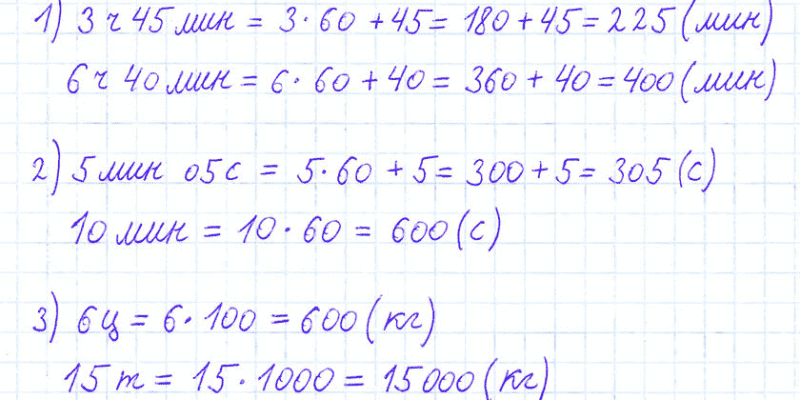 1) 3 ч 45 мин = 3 · 60 + 45 = 180 + 45 = 225 (мин)
6 ч 40 мин = 6 · 60 + 40 = 360 + 40 = 400 (мин)
2) 5 мин 05 с = 5 · 60 + 5 = 300 + 5 = 305 (с)
10 мин = 10 · 60 = 600 (с)
3) 6 ц = 6 · 100 = 600 (кг)
15 т = 15 · 1000 = 15 000 (кг)